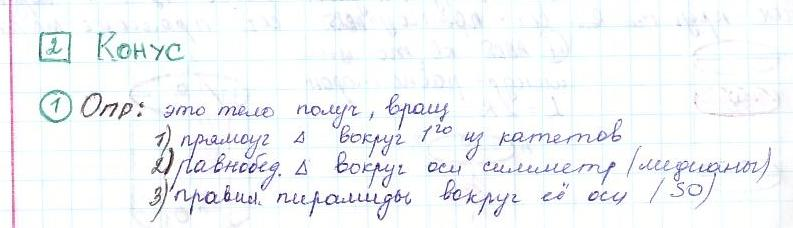 2 Конус
1 Опр: это тело получ, вращ
1) прямоуг △ вокруг 1го из катетов
2) равнобед. △ вокруг оси симметр (медианы)
3) правил. пирамиды вокруг её оси (SO)